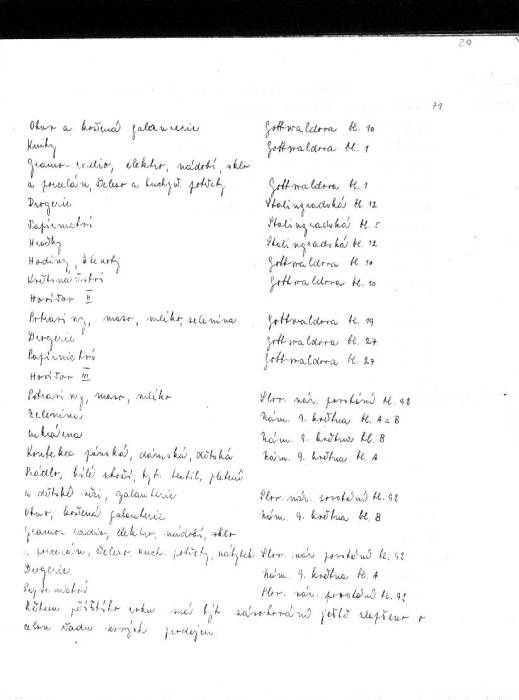 20
71
Obuv a kožená galanterie Gottwaldova bl. 10
Knihy Gottwaldova bl. 1
Gramo-radio, elektro, nádobí, sklo
a porcelán, železo a kuchyň. potřeby Gottwaldova bl. 1
Drogerie Stalingradská bl. 12
Papírnictví Stalingradská bl. 5
Hračky Stalingradská bl. 12
Hodiny, klenoty Gottwaldova bl. 10
Květinářství Gottwaldova bl. 10
Havířov II
Potraviny, maso, mléko, zelenina Gottwaldova bl. 19
Drogerie Gottwaldova bl. 27
Papírnictví Gottwaldova bl. 27
Havířov III
Potraviny, maso, mléko Slov. nár. povstání bl. 98
Zelenina Nám. 9. května bl. A a B
Cukrárna Nám. 9. května bl. B
Konfekce pánská, dámská, dětská Nám. 9. května bl. A
Prádlo, bílé zboží, byt. textil, pletené
a dětské zboží, galanterie Slov. nár. povstání bl. 98
Obuv, kožená galanterie Nám. 9. května bl. B
Gramo-radio, elektro, nádobí, sklo
a porcelán, železo, kuch. potřeby, nábytek Slov. nár. povstání bl. 92
Drogerie Nám. 9. května bl. A
Papírnictví Slov. nár. povstání bl. 92
Během příštího roku má být zásobování ještě zlepšeno o
celou řadu nových prodejen.